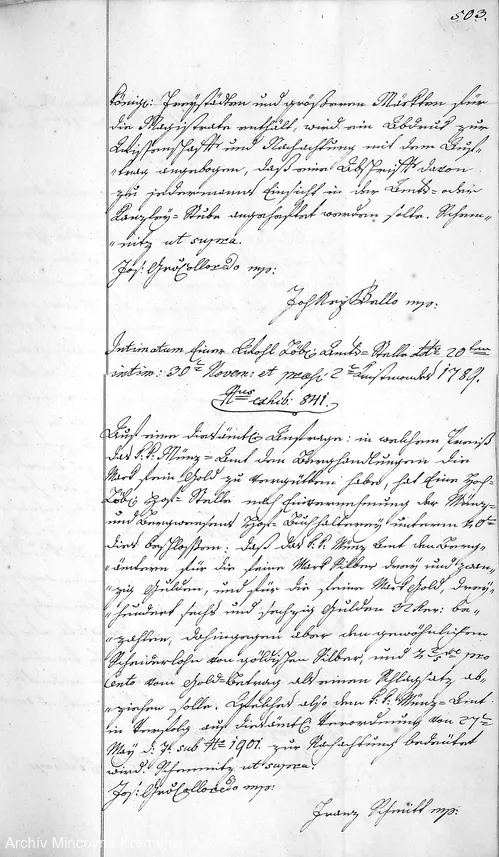 503.
königl: Freystädten und größeren Märkten für
die Magistrate enthält, wird ein Abdruck zur
Wissenschaft und Nachachtung mit dem Auf-
=trag angebogen, daß eine Abschrift davon
zu jedermanns Einsicht in der Amts- oder
Kanzley-Stube angeheftet werden solle. Schem-
=nitz ut supra.
Jos: Gr: Colloredo mp:
Ballo mp:
Intimatum Einer Wohl Löbl: Amts-Stelle ddo 20ten
intim: 30t Novem: et praes: 2t Christmonats 1789.
Nrus exhib: 841.
Auf eine dieämtl: Anfrage: in welchem Preiß
das k:k: Münz-Amt den Berghandlungen die
Mark fein Gold zu vergütten habe, hat Eine Hoch-
Löbl: Hof-Stelle nach Einvernehmung der Münz-
und Bergwesens Hof-Buchhalterey unterm
dies beschlossen: daß das k:k: Münz Amt den Berg-
=ämtern für die feine Mark Silber drey und zwan-
=zig Gulden, und für die feine Mark Gold, drey-
=hundert sechs und sechzig Gulden 32 kr: be-
=zahlen, dahingegen aber den gewöhnlichen
Scheiderlohn von göldischen Silber, und pro
Cento vom Gold-Betrag als einen Schlagschatz ab-
=ziehen solle. Welches also dem k:k: Münz-Amt
in Verfolg auf dieämtl: Verordnung von 27t
May d: J: sub No 1901. zur Nachachtung bedeutet
wird. Schemnitz ut supra.
Jos: Gr: Colloredo mp:
Franz Schmidt mp:
Archiv Mincovne Kremnica